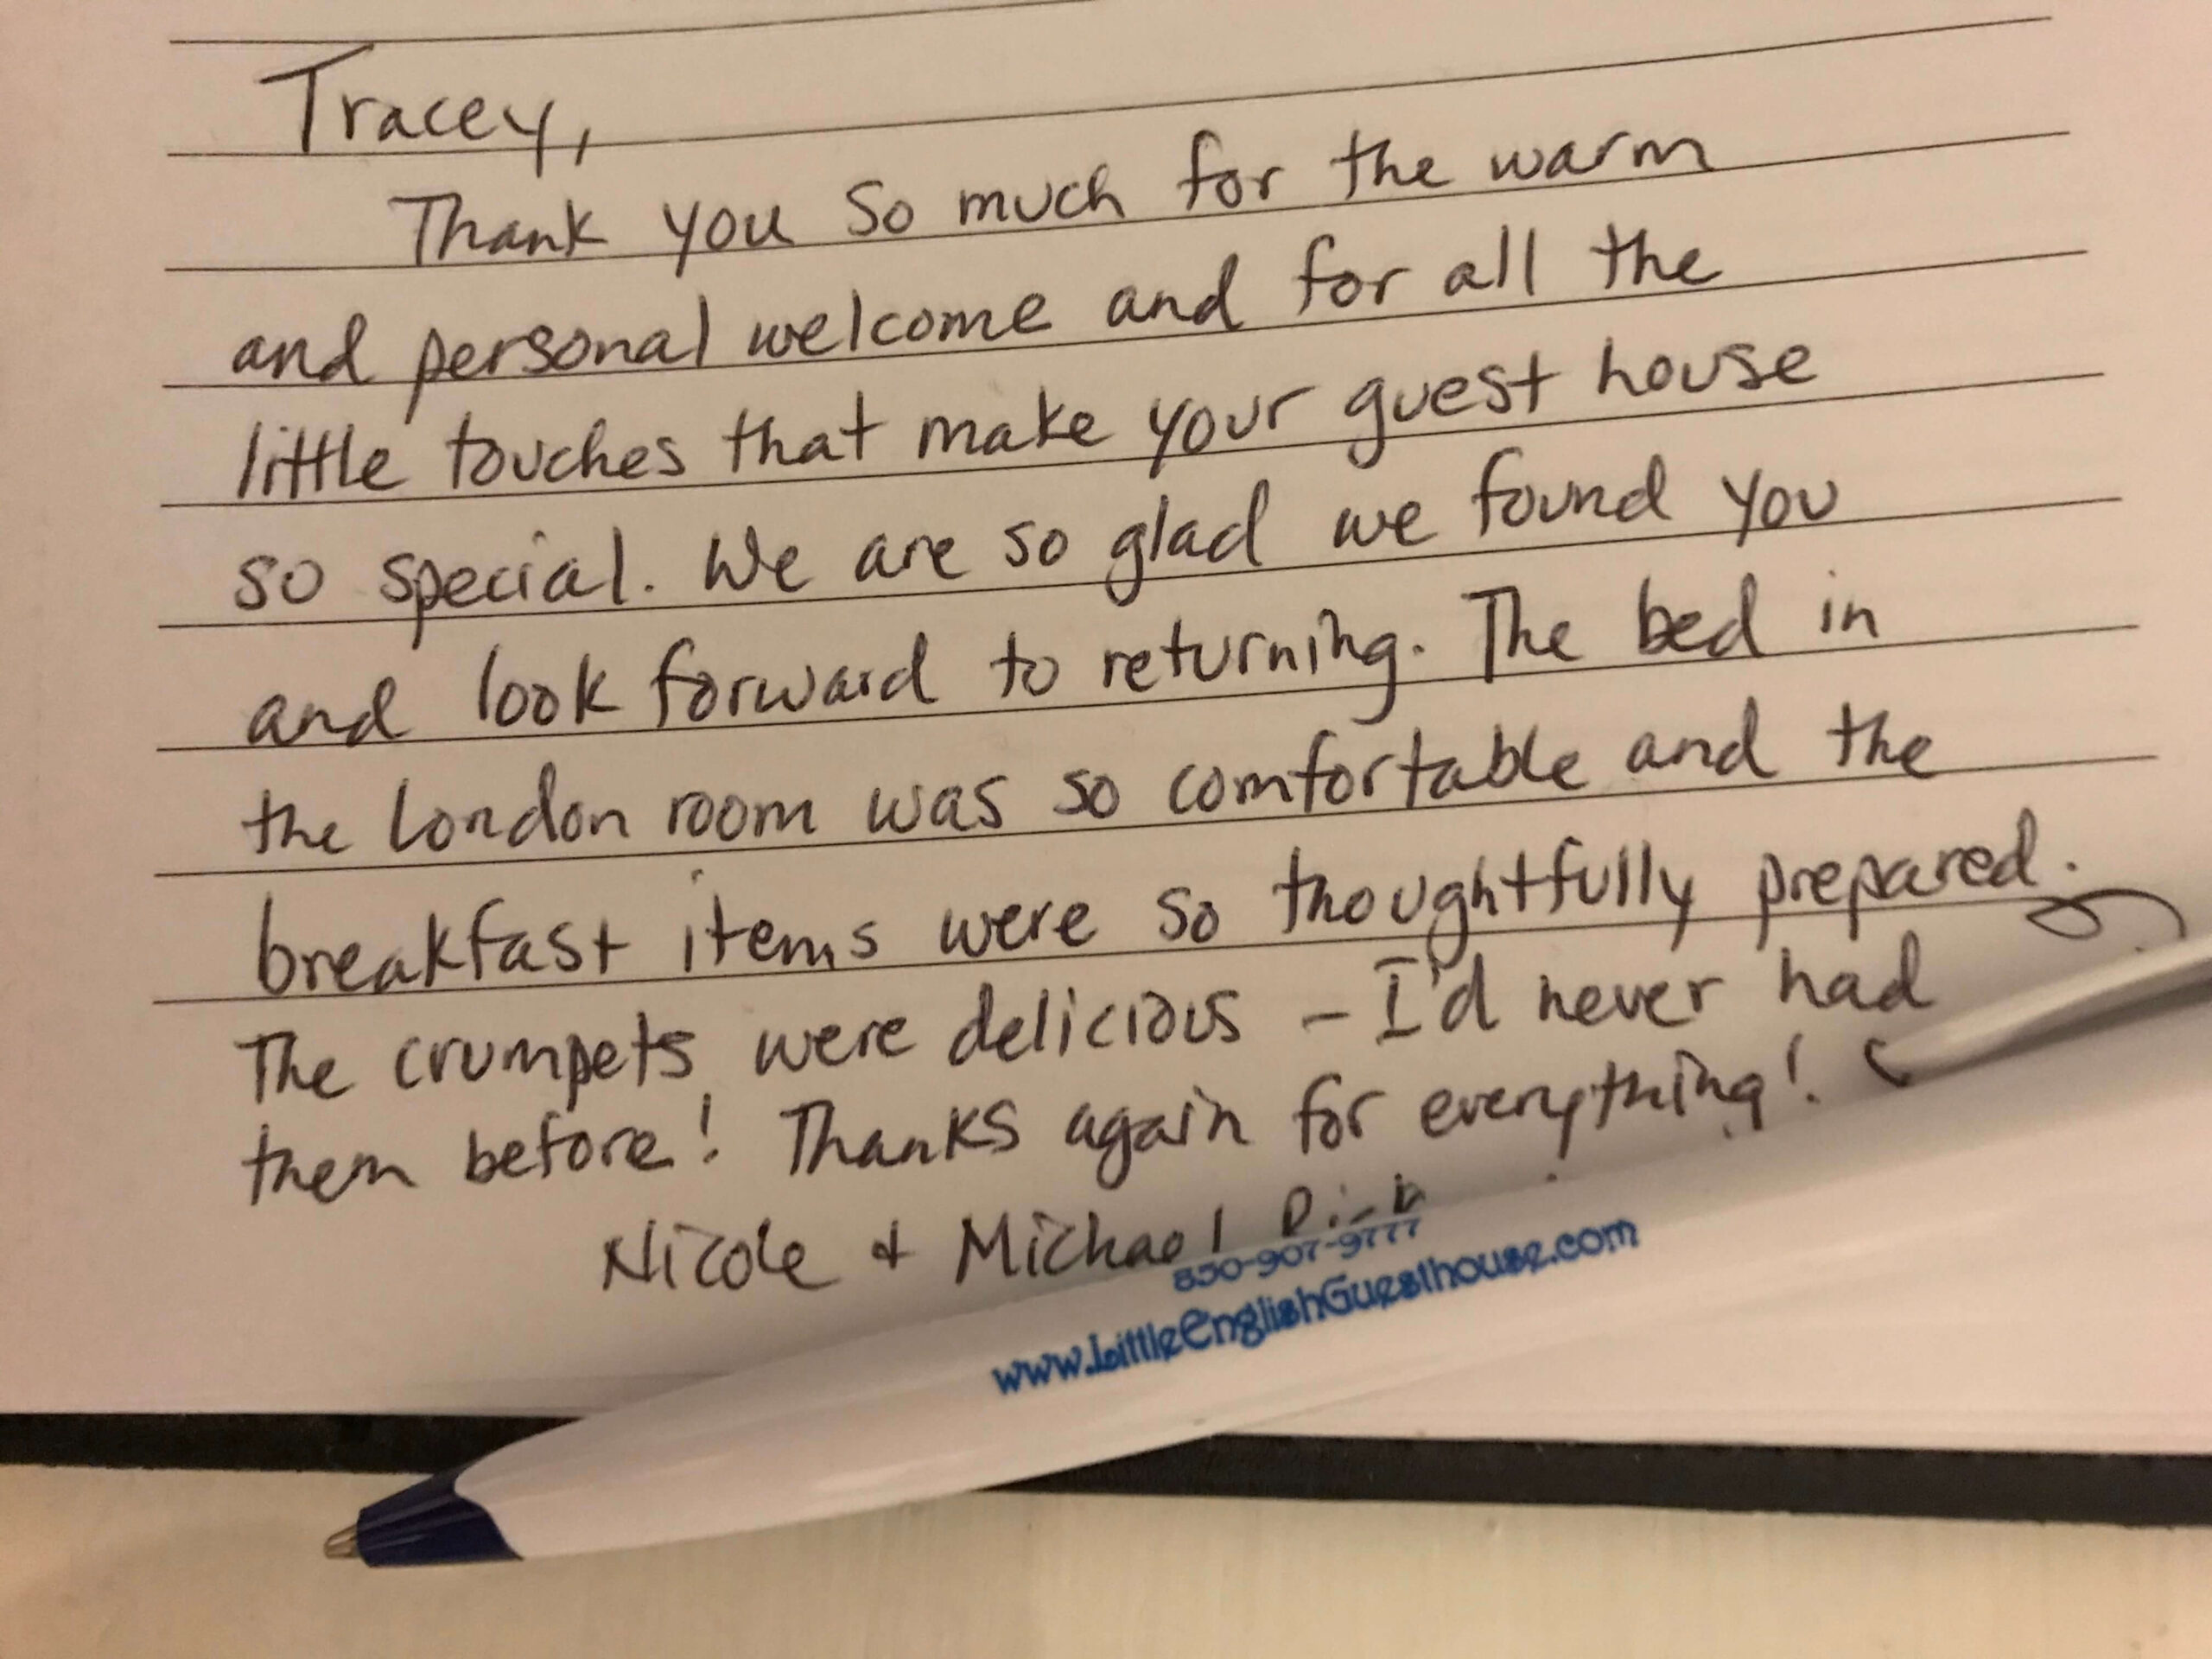 Tracey,
Thank you so much for the warm
and personal welcome and for all the
little touches that make your guest house
so special. We are so glad we found you
and look forward to returning. The bed in
the London room was so comfortable and the
breakfast items were so thoughtfully prepared.
The crumpets were delicious - I'd never had
them before! Thanks again for everything!
Nicole + Michael
850-907-9777
www.LittleEnglishGuesthouse.com